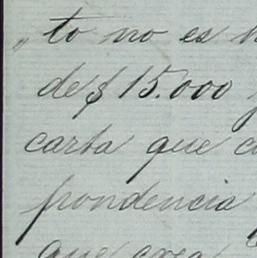 „to no es
de $15.000
carta que
pondencia
que crea